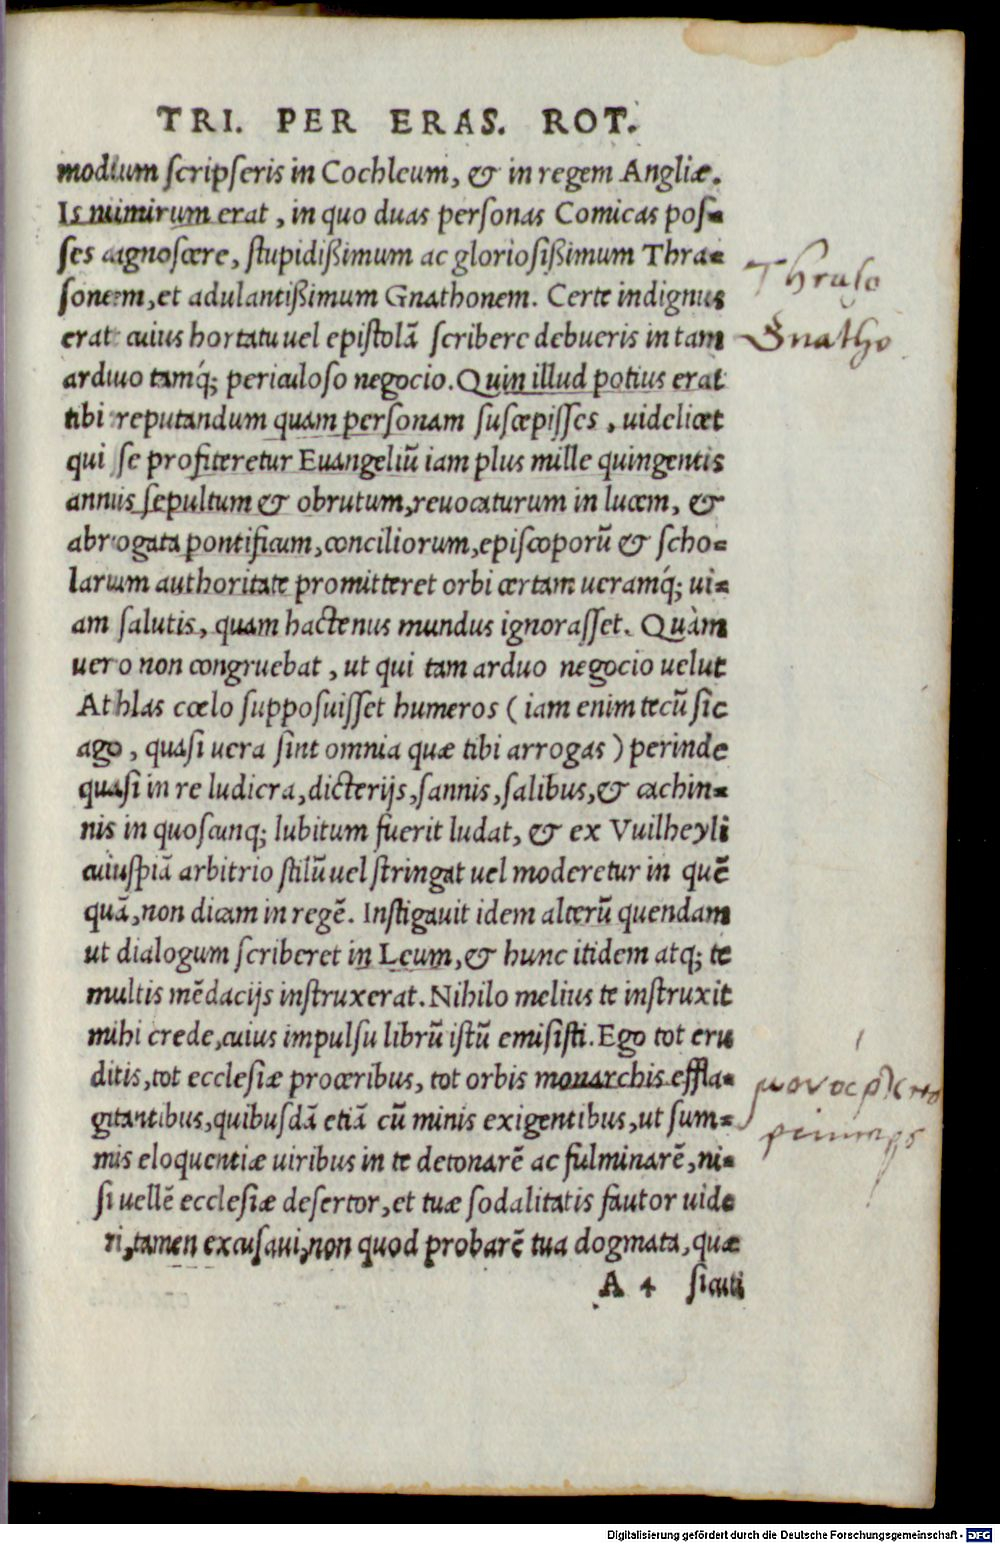 TRI. PER ERAS. ROT.
modium scripseris in Cochleum, & in regem Angliæ.
Is nimirum erat, in quo duas personas Comicas pos=
ses agnoscere, stupidißimum ac gloriosißimum Thra=
sonem, et adulantißimum Gnathonem. Certe indignus
erat cuius hortatu uel epistolā scribere debueris in tam
arduo tamq́; periculoso negocio. Quin illud potius erat
tibi reputandum quam personam suscepisses, uidelicet
qui se profiteretur Euangeliū iam plus mille quingentis
annis sepultum & obrutum, reuocaturum in lucem, &
abrogata pontificum, conciliorum, episcoporū & scho=
larum authoritate promitteret orbi certam ueramq́; ui=
am salutis, quam hactenus mundus ignorasset. Quàm
uero non congruebat, ut qui tam arduo negocio uelut
Athlas cœlo supposuisset humeros ( iam enim tecū sic
ago, quasi uera sint omnia quæ tibi arrogas ) perinde
quasi in re ludicra, dicterijs, sannis, salibus, & cachin=
nis in quoscunq; lubitum fuerit ludat, & ex Vuilheyli
cuiuspiā arbitrio stilū uel stringat uel moderetur in quē
quā, non dicam in regē. Instigauit idem alterū quendam
ut dialogum scriberet in Leum, & hunc itidem atq; te
multis mēdacijs instruxerat. Nihilo melius te instruxit
mihi crede, cuius impulsu librū istū emisisti. Ego tot eru
ditis, tot ecclesiæ proceribus, tot orbis monarchis effla=
gitantibus, quibusdā etiā cū minis exigentibus, ut sum=
mis eloquentiæ uiribus in te detonarē ac fulminarē, ni=
si uellē ecclesiæ desertor, et tuæ sodalitatis fautor uide
ri, tamen excusaui, non quod probarē tua dogmata, quæ
A 4 sicuti
Thraso
Gnatho
Digitalisierung gefördert durch die Deutsche Forschungsgemeinschaft - DFG